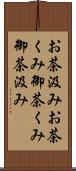 お茶汲みお茶
くみ御茶くみ
御茶汲み